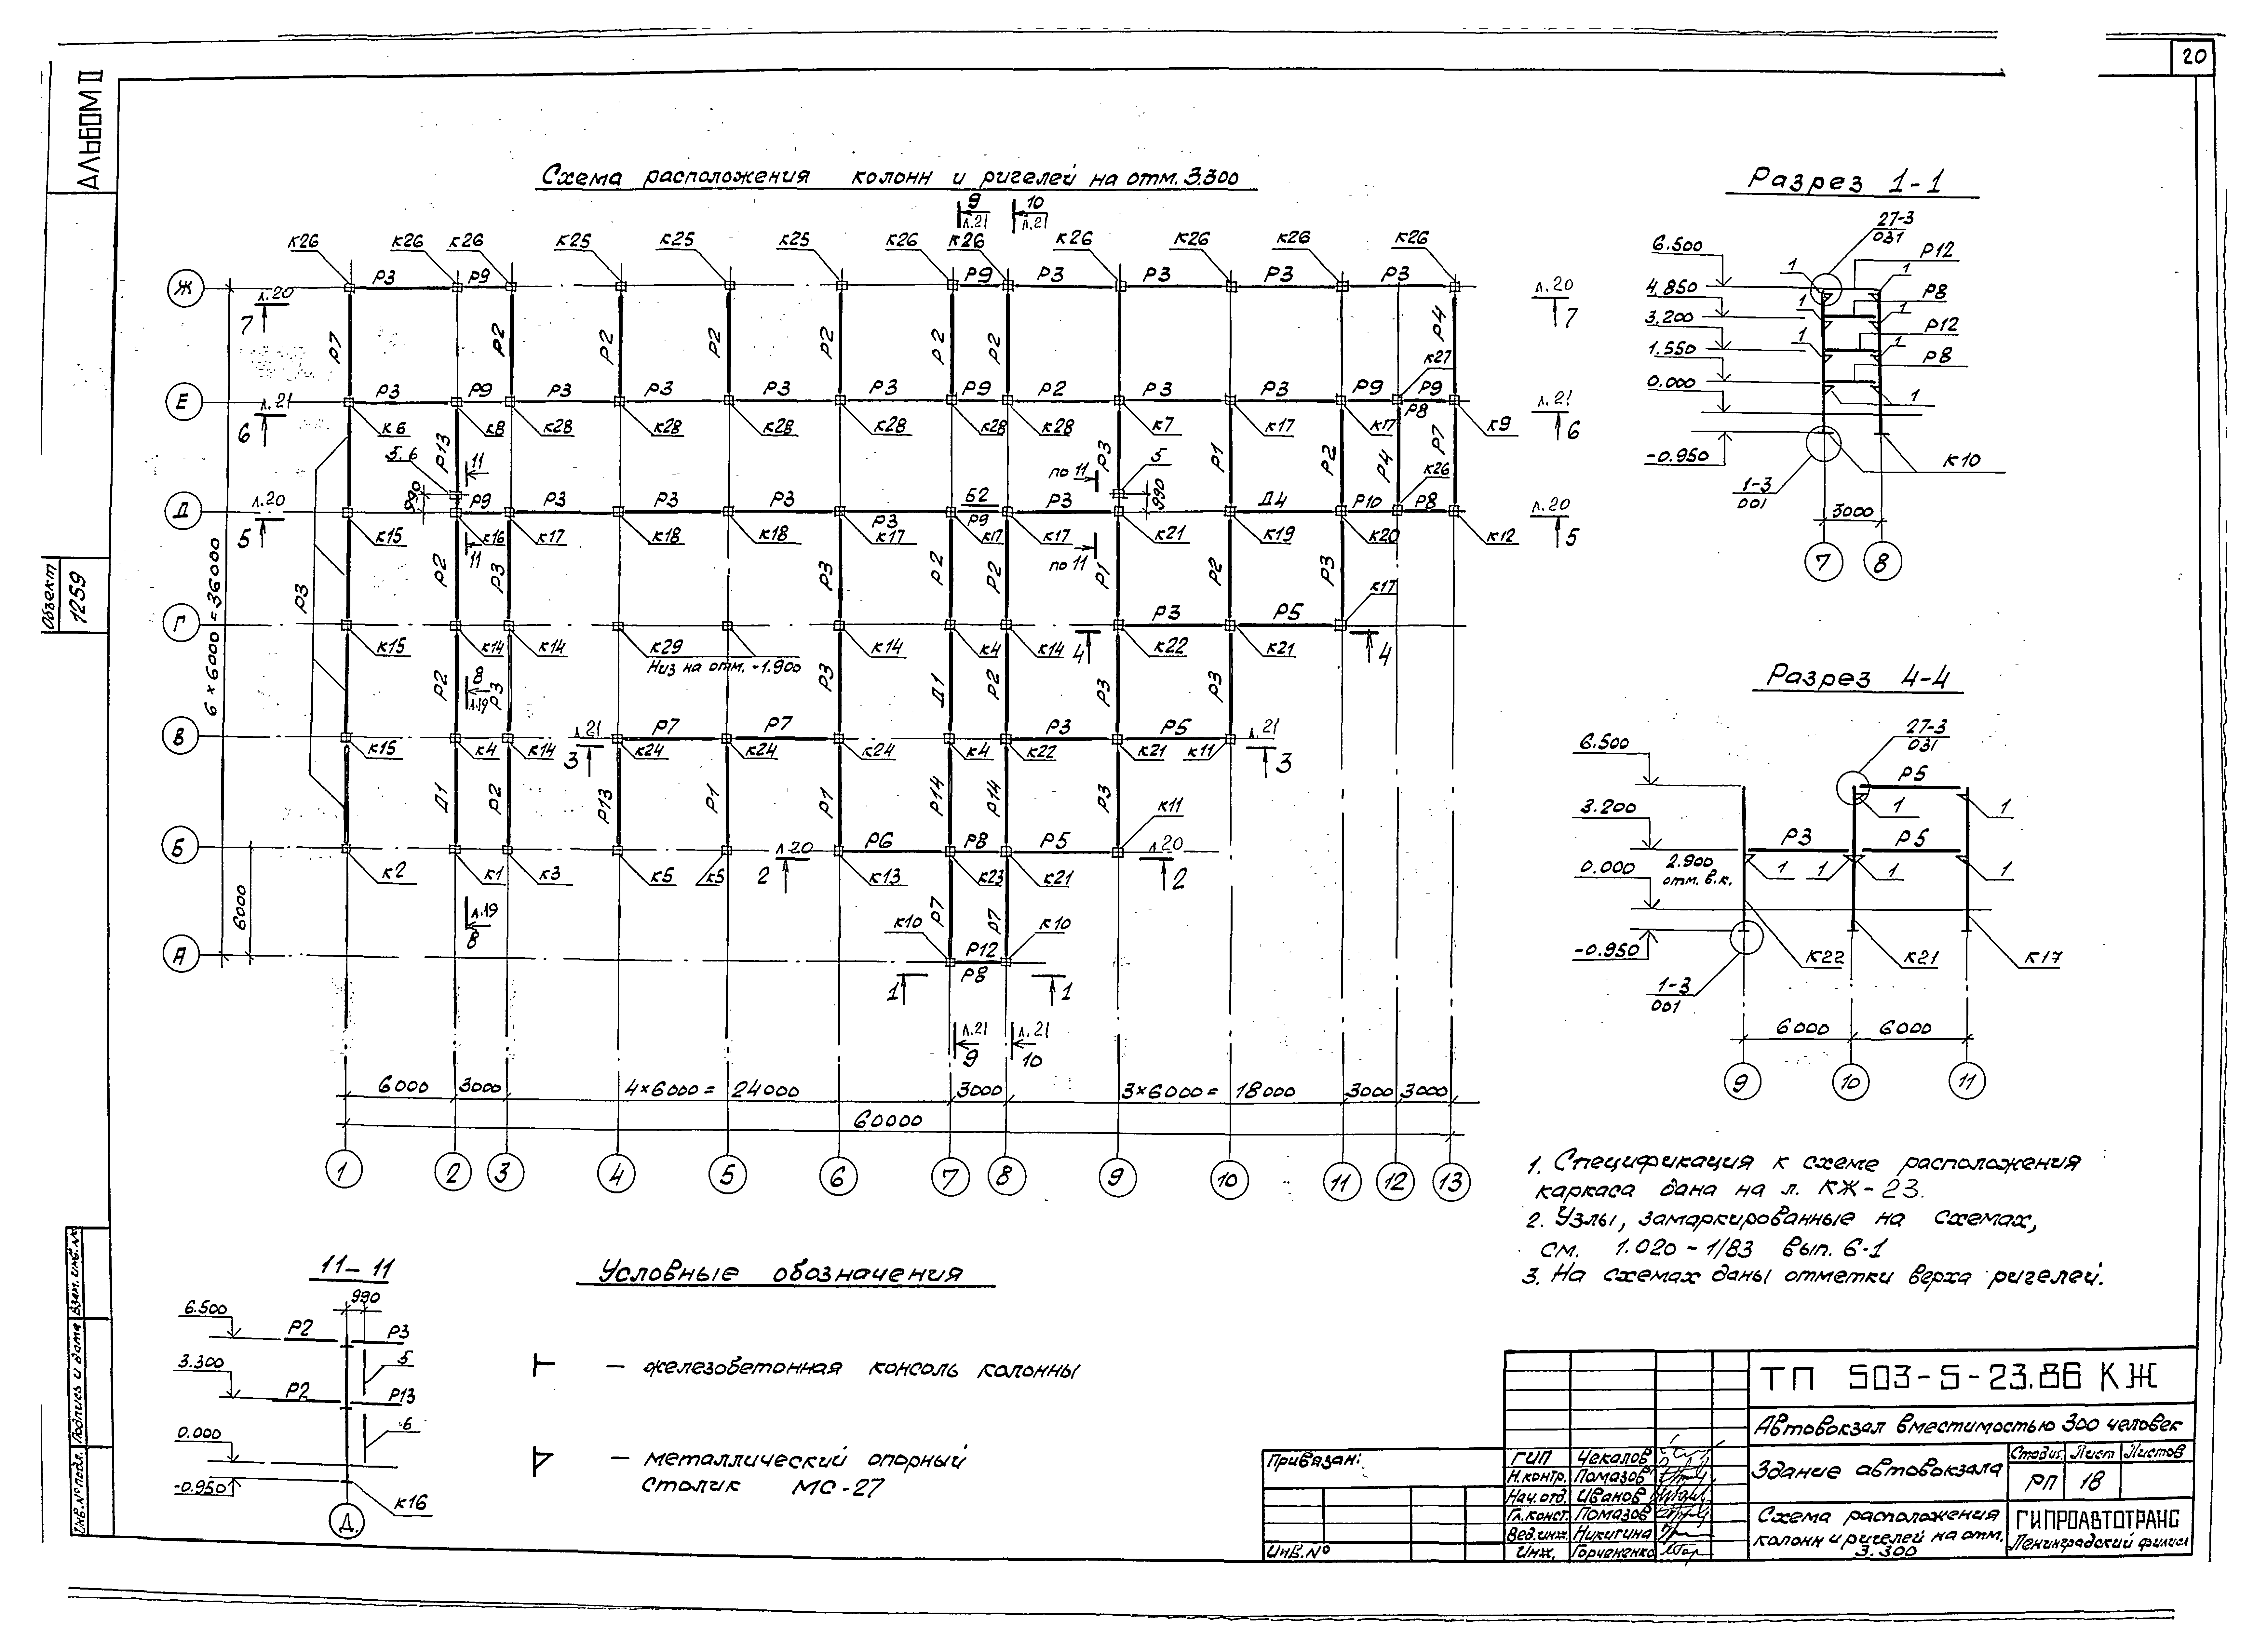 20
АЛЬБОМ II
Объект
1259
Схема расположения колонн и ригелей на отм. 3.300
9 10
л.21 л.21
к26 к26 к26 к25 к25 к25 к26 к26 к26 к26 к26 к26
Ж Р3 Р9 Р9 Р3 Р3 Р3 Р3
л.20 л.20
7 7
Р7 Р2 Р2 Р2 Р2 Р2 Р2 Р4
к27
Е Р3 Р9 Р3 Р3 Р3 Р3 Р9 Р2 Р3 Р3 Р9 Р9
Р8
л.21 л.21
6 6
к6 к8 к28 к28 к28 к28 к28 к28 к7 к17 к17 к9
Р13 Р3 Р1 Р2 Р4 Р7
5.6 11 по 11 5 к26
990 990
Д Р9 Р3 Р3 Р3 Р3 Б2 Р9 Р3 Д4 Р10 Р8
л.20 л.20
5 5
к15 к16 к17 к18 к18 к17 к17 к17 к21 к19 к20 к12
11 по 11
Р3 Р2 Р3 Р3 Р2 Р2 Р1 Р2 Р3
к17
Г Р3 Р5
к15 к14 к14 к29 к14 к4 к14 к22 к21
4 4
Низ на отм. -1.900
Р2 Р3 Р3 Д1 Р2 Р3 Р3
8
л.19
В Р7 Р7 Р3 Р5
л.21 л.21
3 3
к15 к4 к14 к24 к24 к24 к4 к22 к21 к11
Д1 Р2 Р13 Р1 Р1 Р14 Р14 Р3
к11
Б Р6 Р8 Р5
л.20 л.20
2 2
к2 к1 к3 к5 к5 к13 к23 к21
л.19
8
Р7 Р7
к10 к10
А Р12
Р8
1 1
л.21 л.21
9 10
6 × 6000 = 36000
6000
6000 3000 4×6000 = 24000 3000 3×6000 = 18000 3000 3000
60000
1 2 3 4 5 6 7 8 9 10 11 12 13
Разрез 1-1
27-3
031
6.500 1 1 Р12
4.850 1 1 Р8
3.200 1 1 Р12
1.550 Р8
0.000 1
-0.950 К10
1-3
001
3000
7 8
Разрез 4-4
27-3
031
6.500 Р5
1 1
3.200 Р3 Р5
2.900
отм. в.к.
0.000 1 1 1 1
-0.950 к22 к21 к17
1-3
001
6000 6000
9 10 11
1. Спецификация к схеме расположения
каркаса дана на л. КЖ-23.
2. Узлы, замаркированные на схемах,
см. 1.020-1/83 вып. 6-1
3. На схемах даны отметки верха ригелей.
11-11
990
6.500 Р2 Р3
5
3.300 Р2 Р13
6
0.000
-0.950 к16
Д
Условные обозначения
– железобетонная консоль колонны
– металлический опорный
столик МС-27
Взам. инв. №
Подпись и дата
Инв. № подл.
Привязан:
Инв. №
ГИП Чекалов
Н.контр. Помазов
Нач. отд. Иванов
Гл.конст. Помазов
Вед.инж. Никитина
Инж. Горчененко
ТП 503-5-23.86 КЖ
Автовокзал вместимостью 300 человек
Здание автовокзала
Стадия Лист Листов
РП 18
Схема расположения
колонн и ригелей на отм.
3.300
ГИПРОАВТОТРАНС
Ленинградский филиал